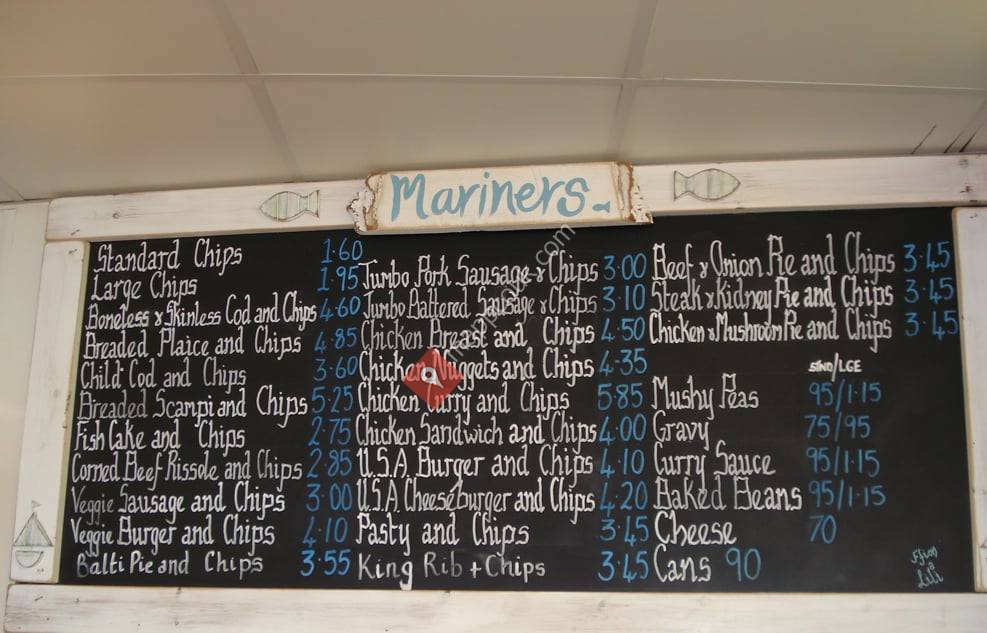 Mariners
Standard Chips 1.60
Large Chips 1.95
Boneless & Skinless Cod and Chips 4.60
Breaded Plaice and Chips 4.85
Child Cod and Chips 3.60
Breaded Scampi and Chips 5.25
Fish Cake and Chips 2.75
Corned Beef Rissole and Chips 2.85
Veggie Sausage and Chips 3.00
Veggie Burger and Chips 4.10
Balti Pie and Chips 3.55
Jumbo Pork Sausage & Chips 3.00
Jumbo Battered Sausage & Chips 3.10
Chicken Breast and Chips 4.50
Chicken Nuggets and Chips 4.35
Chicken Curry and Chips 5.85
Chicken Sandwich and Chips 4.00
U.S.A. Burger and Chips 4.10
U.S.A. Cheeseburger and Chips 4.20
Pasty and Chips 3.45
King Rib + Chips 3.45
Beef & Onion Pie and Chips 3.45
Steak & Kidney Pie and Chips 3.45
Chicken & Mushroom Pie and Chips 3.45
STND/LGE
Mushy Peas 95/1.15
Gravy 75/95
Curry Sauce 95/1.15
Baked Beans 95/1.15
Cheese 70
Cans 90